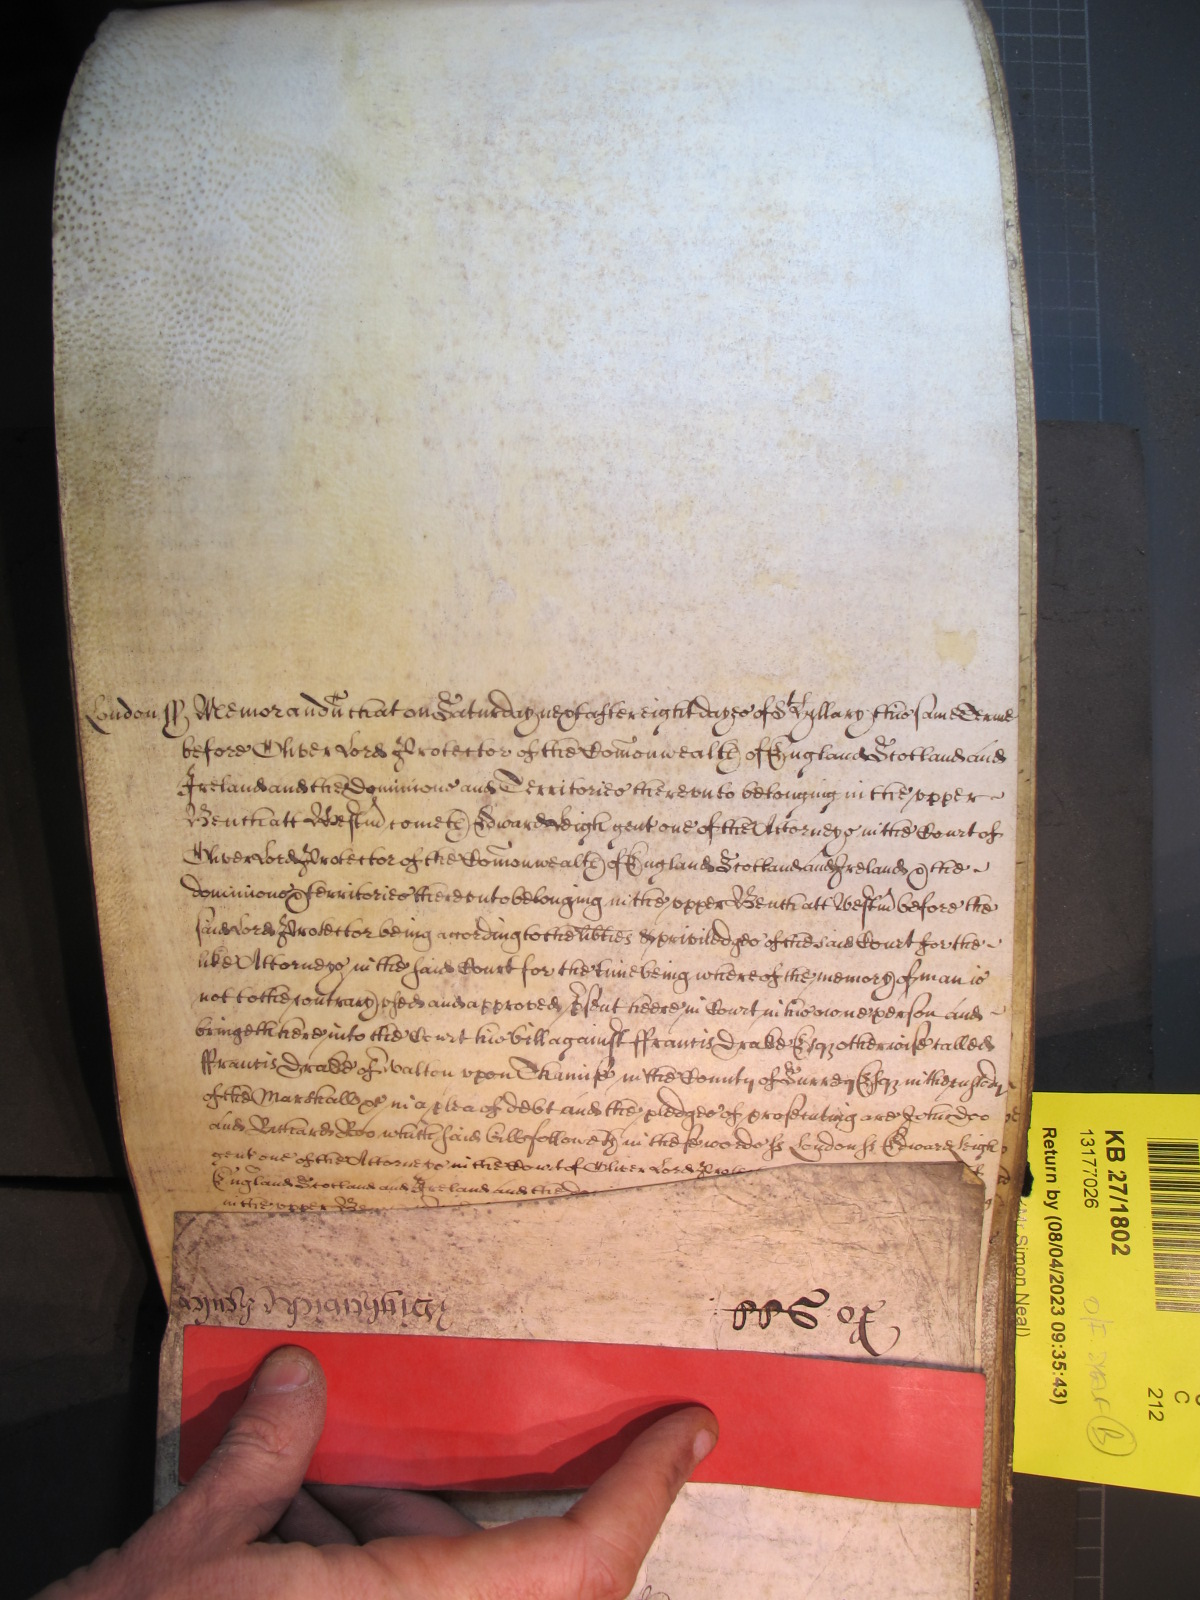 London ss Memorandu that on Saturday next after eight dayes of St Hyllary this same Terme
before Oliver Lord Protector of the Comonwealth of England Scotland and
Ireland and the Dominions and Territories thereunto belonging in the upper
Bench att Westm cometh Edward Leigh gent one of the Attorneys in the Court of
Oliver Lord Protector of the Comonwealth of England Scotland and Ireland & the
dominions & territories thereunto belonging in the upper Bench att Westm before the
said Lord Protector being according to the libties & priviledges of the said Court for the
like Attorneys in the said Court for the time being whereof the memory of man is
not to the contrary used and approved psent heere in Court in his owne person and
bringeth here into the Court his bill against ffrancis Drake Esqz otherwise called
ffrancis Drake of Walton upon Thamise in the County of Surrey Esqz in the custody
of the Marshall &c in a plea of debt and the pledges of prosecuting are John Doo
and Richard Roo which said bill followeth in these words ss London ss Edward Leigh
gent one of the Attorneys in the Court of Oliver Lord
England Scotland and Ireland and the
in the upper
KB 27/1802
13177026
Return by (08/04/2023 09:35:43)
(Mr Simon Neal)
C
212
B